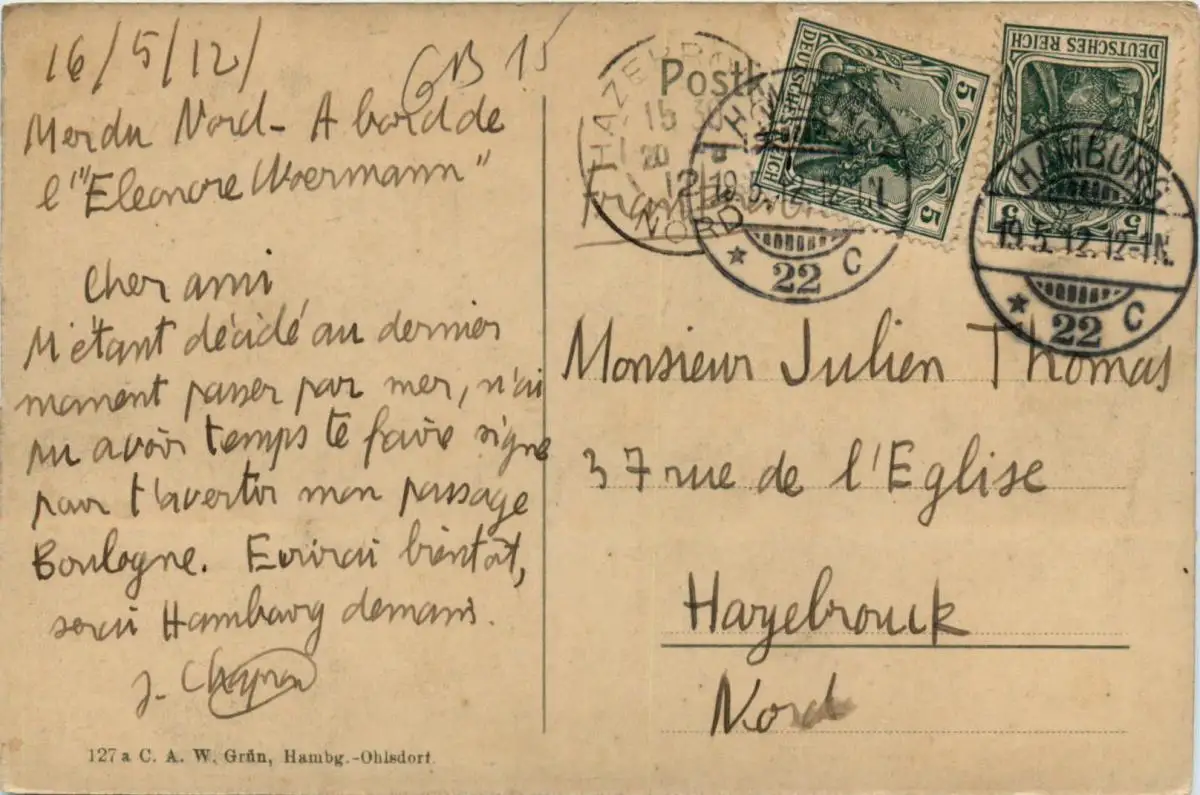 16/5/12/
GB 15
Mer du Nord - A bord de
l'"Eleonore Woermann"
Cher ami
M'étant décidé au dernier
moment passer par mer, n'ai
pu avoir temps te faire signe
pour t'avertir mon passage
Boulogne. Ecrirai bientôt,
serai Hambourg demain.
J.
127 a C. A. W. Grün, Hambg.-Ohlsdorf.
Postk
HAZEBRO
15 30
20
12
NORD
DEUTSCHES REICH
5
5
19.5.12.12-1N.
* 22 C
DEUTSCHES REICH
5
5
HAMBURG
19.5.12.12-1N.
* 22 C
Monsieur Julien Thomas
37 rue de l'Eglise
Hazebrouck
Nord